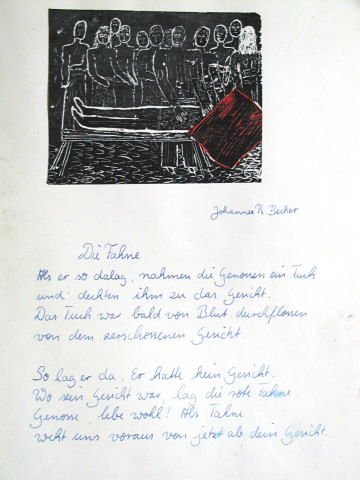 Johannes R. Becher
Die Fahne
Als er so dalag, nahmen die Genossen ein Tuch
und deckten ihm zu das Gesicht.
Das Tuch war bald von Blut durchflossen
von dem zerschossenen Gesicht.
So lag er da. Er hatte kein Gesicht.
Wo sein Gesicht war, lag die rote Fahne.
Genosse, lebe wohl! Als Fahne
weht uns voraus von jetzt ab dein Gesicht.